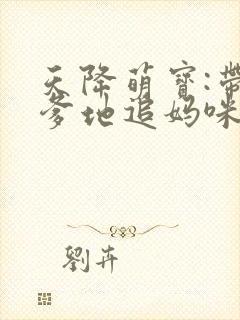 天降萌寶:帶
爹地追妈咪
劉卉